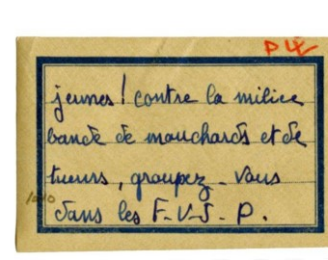 jeunes ! contre la milice
bande de mouchards et de
tueurs, groupez-vous
dans les F-U-J-P.